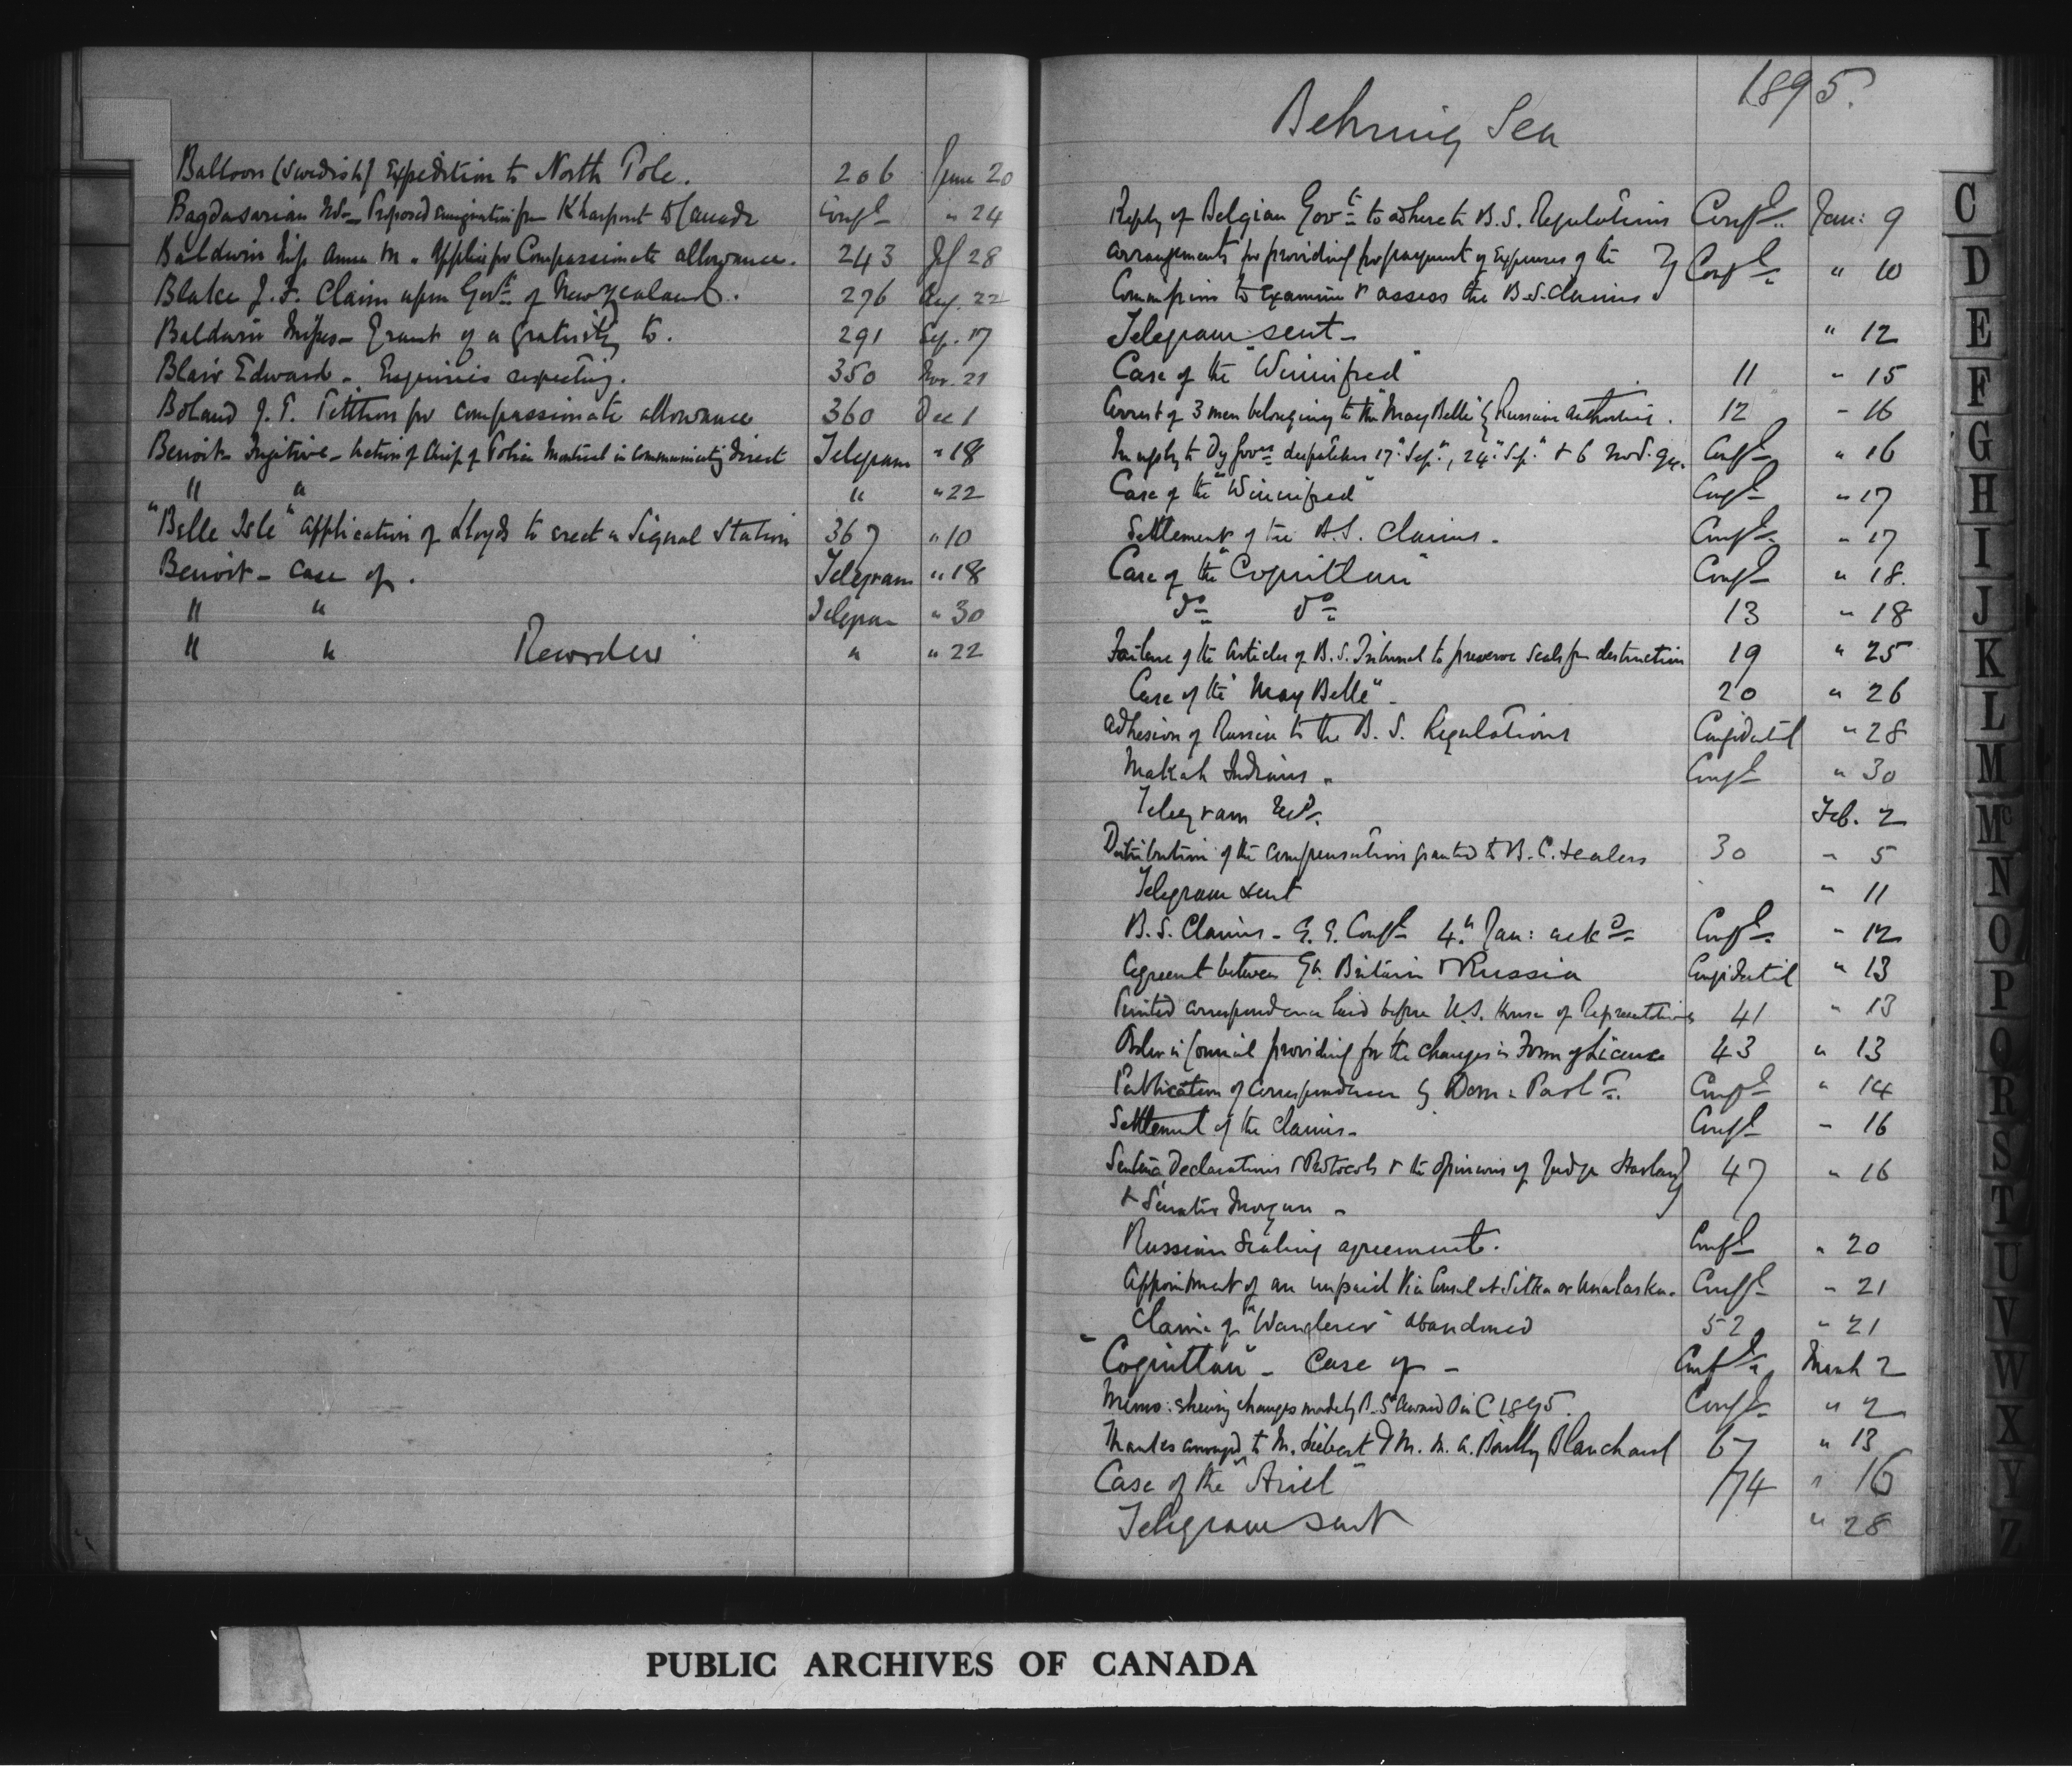 Balloon (Swedish) Expedition to North Pole. 206 June 20
Bagdasarian Proposed emigration from Kharpout to Canada Confl " 24
Baldwin Miss Anna M. applies for Compassionate allowance. 243 Jl 28
Blake J. F. Claim upon Govt of New Zealand. 276 Aug. 22
Baldwin Misses - Grant of a gratuity to. 291 Sep. 17
Blair Edward - Enquiries respecting. 350 Nov. 21
Boland J. T. Petition for compassionate allowance 360 Dec 1
Benoit Fugitive - Action of Chief of Police Montreal in communicating direct Telegram " 18
" " " " 22
"Belle Isle" application of Lloyds to erect a Signal Station 367 " 10
Benoit - Case of. Telegram " 18
" " Telegram " 30
" " " " 22
1895.
Behring Sea
Reply of Belgian Govt to adhere to B. S. Regulations Confl. Jan: 9
Arrangements for providing for payment of Expenses of the } Confl. " 10
Commission to examine & assess the B. S. Claims }
Telegram sent - " 12
Case of the "Winnifred" 11 " 15
Arrest of 3 men belonging to the "May Belle" by Russian authorities. 12 " 16
In reply to Dy Govrs despatches 17" Sep", 24" Sep" & 6 Nov. 94. Confl " 16
Case of the "Winnifred" Confl " 17
Settlement of the B.S. Claims. Confl " 17
Case of the "Coquitlam" Confl " 18.
do do 13 " 18
Failure of the Articles of B. S. Tribunal to preserve Seals from destruction 19 " 25
Case of the "May Belle" - 20 " 26
Adhesion of Russia to the B. S. Regulations Confidential " 28
Makah Indians. Confl " 30
Telegram Recd. Feb. 2
Distribution of the compensation granted to B. C. sealers 30 " 5
Telegram sent " 11
B. S. Claims - G. G. Confl 4th Jan: ackd Confl. " 12
Agreemt between Gt. Britain & Russia Confidential " 13
Printed correspondence laid before U.S. House of Representatives 41 " 13
Order in Council providing for the changes in Form of License 43 " 13
Publication of Correspondence by Dom: Parlt. Confl " 14
Settlement of the Claims - Confl " 16
Declarations & Protocols & the Opinions of Judge Harland } 47 " 16
& Senator Morgan - }
Russian Sealing agreement. Confl " 20
Appointment of an unpaid Vice Consul at Sitka or Unalaska. Confl " 21
Claim of "Wanderer" abandoned 52 " 21
"Coquitlam" - Case of - Confl. March 2
Memo: shewing changes made by B. S. Award O in C 1895. Confl. " 2
Thanks conveyed to M. Liebert & M. M. A. Bailly Blanchard 67 " 13
Case of the "Ariel" 74 " 16
Telegram sent " 28
C
D
E
F
G
H
I
J
K
L
M
Mc
N
O
P
Q
R
S
T
U
V
W
X
Y
Z
PUBLIC ARCHIVES OF CANADA